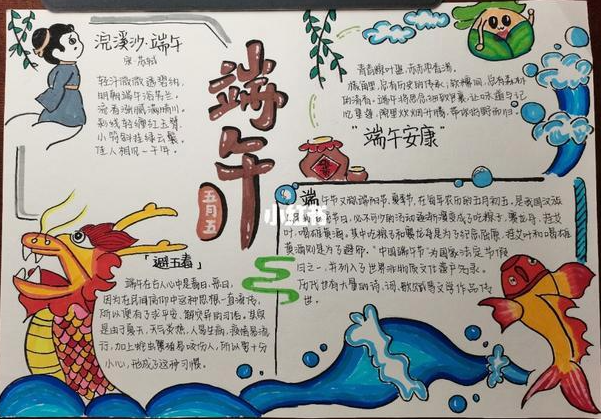 浣溪沙·端午
宋·苏轼
轻汗微微透碧纨
明朝端午浴芳兰
流香涨腻满晴川
彩线轻缠红玉臂
小符斜挂绿云鬟
佳人相见一千年
端午
五月五
小红书
总有历史的传承，软糯间，总有
的清香，端午将
“端午安康”
「避五毒」
端午在古人心中是毒日、恶日，
因为在民间信仰中这种思想一直流传，
所以便有了求平安、
由于夏天，天气炎热，人易生病，瘟疫易流
行，加上蛇虫繁殖易咬伤人，所以要十分
小心，形成了这种习惯。
端午节又称端阳节、在每年农历的五月初五，是我国汉族
节日，必不可少的活动逐渐演变成了吃粽子、赛龙舟、挂艾
叶、喝雄黄酒，其中吃粽子和赛龙舟是为了纪念屈原，挂艾叶和喝雄
黄酒则是为了避邪，“中国端午节”为国家法定节假
日之一，并列入了世界非物质文化遗产名录。
历代也有大量的诗、词、歌赋等文学作品传
世。